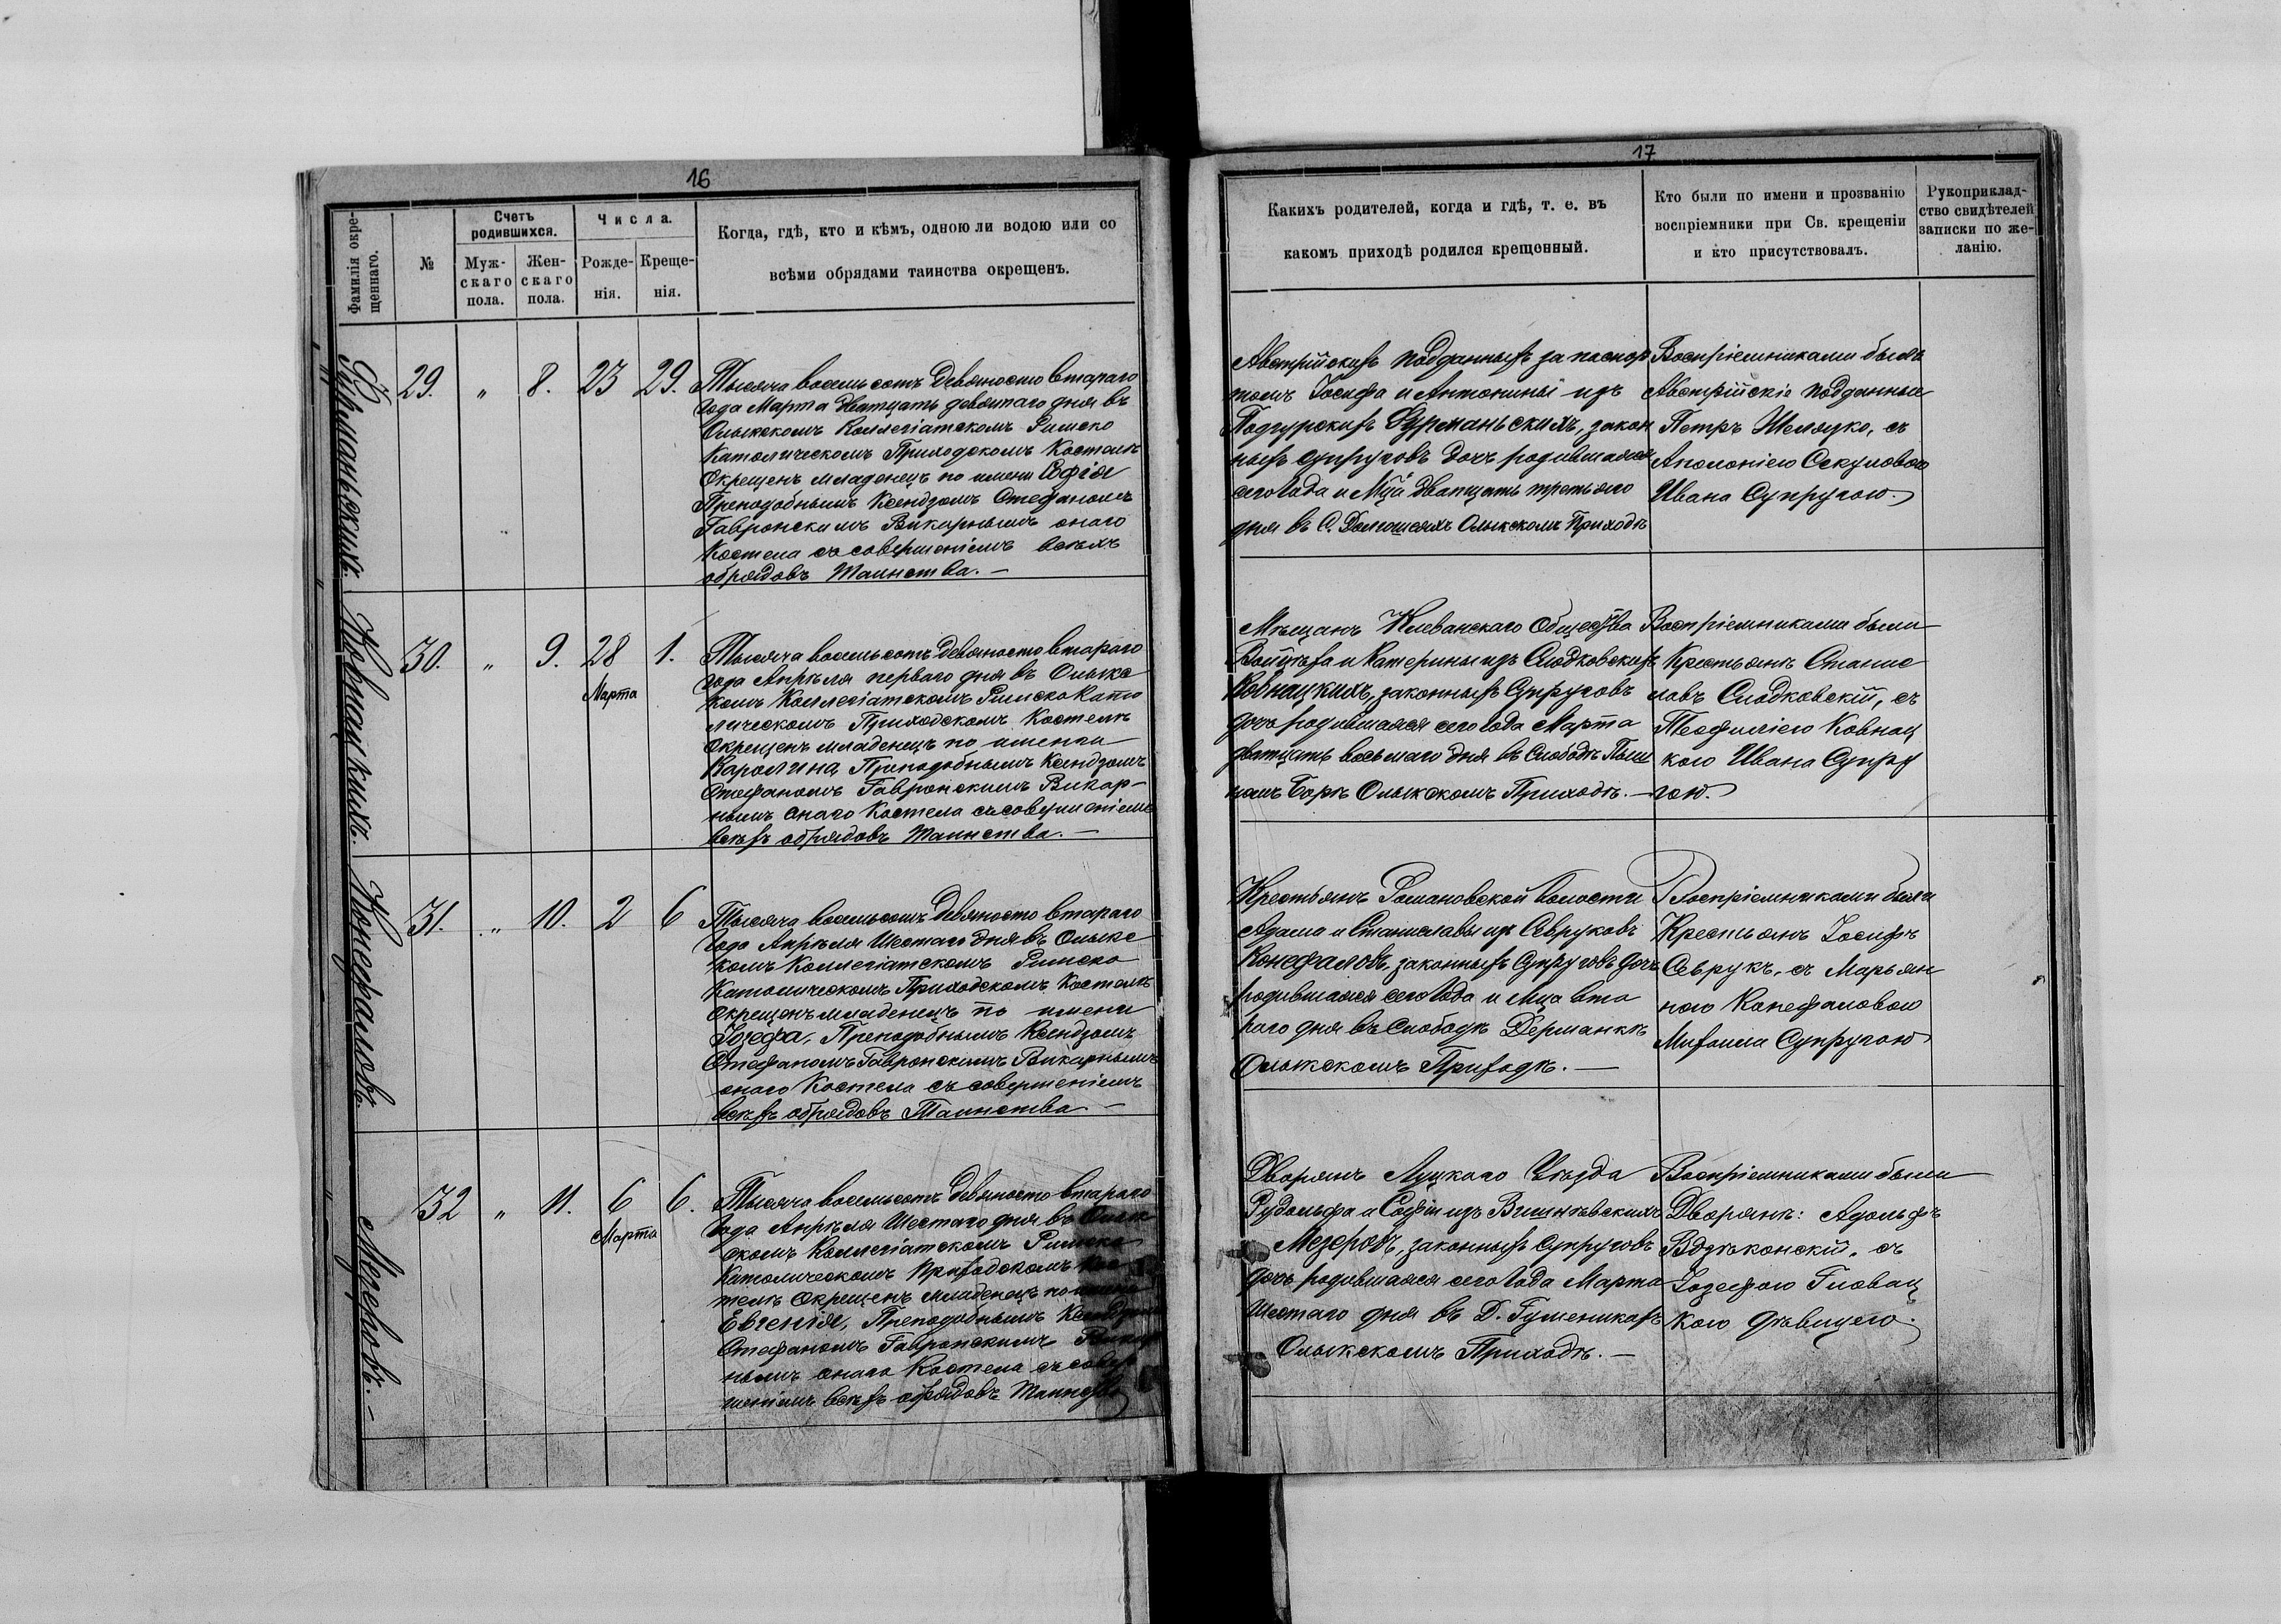 16
Фамилія окре-
щеннаго.
№
Счетъ
родившихся.
Муж-
скаго
пола.
Жен-
скаго
пола.
Числа.
Рожде-
нія.
Креще-
нія.
Когда, гдѣ, кто и кѣмъ, одною ли водою или со
всѣми обрядами таинства окрещенъ.
Фурманьскихъ.
29. " 8. 23 29.
Тысяча восемьсотъ девяносто втараго
года Марта дватцать девятаго дня въ
Олыкскомъ Коллегіатскомъ Римско
Католическомъ Приходскомъ Костелѣ
Окрещенъ младенецъ по имени Софія
Преподобнымъ Ксендзомъ Стефаномъ
Гавронскимъ Викарнымъ онаго
Костела съ совершеніемъ всѣхъ
обрядовъ Таинства. —
Ковнацкихъ.
30. " 9. 28 1.
Марта
Тысяча восемьсотъ девяносто втараго
года Апрѣля перваго дня въ Олыкс
комъ Коллегіатскомъ Римско Като
лическомъ Приходскомъ Костелѣ
Окрещенъ младенецъ по имени
Каролина Преподобнымъ Ксендзомъ
Стефаномъ Гавронскимъ Викар-
нымъ онаго Костела съ совершеніемъ
всѣхъ обрядовъ Таинства. —
Конефаловъ.
31. " 10. 2 6
Тысяча восемьсотъ девяносто втараго
года Апрѣля Шестаго дня въ Олыкс
комъ Коллегіатскомъ Римско
Католическомъ Приходскомъ Костелѣ
окрещенъ младенецъ по имени
Іозефа, Преподобнымъ Ксендзомъ
Стефаномъ Гавронскимъ Викарнымъ
онаго Костела съ совершеніемъ
всѣхъ обрядовъ Таинства —
Мезеровъ. —
32 " 11. 6 6.
Марта
Тысяча восемьсотъ девяносто втараго
Года Апрѣля Шестаго дня въ Олык
скомъ Коллегіатскомъ Римско
Католическомъ Приходскомъ Кос
телѣ окрещенъ младенецъ по имени
Евгенія, Преподобнымъ Ксендзомъ
Стефаномъ Гавронскимъ Викар
нымъ онаго Костела съ совер
шеніемъ всѣхъ обрядовъ Таинства
17
Какихъ родителей, когда и гдѣ, т. е. въ
какомъ приходѣ родился крещенный.
Кто были по имени и прозванію
воспріемники при Св. крещеніи
и кто присутствовалъ.
Рукоприклад-
ство свидѣтелей
записки по же-
ланію.
Австрійскихъ подданныхъ за паспор
томъ Іосифа и Антонины изъ
Подгурскихъ Фурманьскихъ, закон
ныхъ супруговъ дочь родившаяся
сего года и Мца дватцать третьяго
дня въ С. Долгошеяхъ Олыкскомъ Приходѣ
Воспріемниками были
Австрійскіе подданные
Петръ Шелоуко, съ
Аполоніею Секуловою
Ивана Супругою.
Мѣщанъ Клеванскаго Общества
Войцѣха и Катерины изъ Слодковскихъ
Ковнацкихъ, законныхъ Супруговъ
дочь родившаяся сего года Марта
дватцать восьмаго дня въ Слободѣ Пыш
номъ Борѣ Олыкскомъ Приходѣ. —
Воспріемниками были
Крестьянъ Станис
лавъ Слодковскій, съ
Теофиліею Ковнац
кою Ивана Супру
гою.
Крестьянъ Романовской волости
Адама и Станиславы изъ Севруковъ
Конефаловъ, законныхъ Супруговъ дочь
родившаяся сего года и Мца вта
раго дня въ Слободѣ Дерманкѣ
Олыкскомъ Приходѣ. —
Воспріемниками были
Крестьянъ Іосифъ
Севрукъ, съ Марьян
ною Конефаловою
Михаила Супругою
Дворянъ Луцкаго Уѣзда
Рудольфа и Софіи изъ Вишнѣвскихъ
Мезеровъ, законныхъ Супруговъ
дочь родившаяся сего года Марта
Шестаго дня въ Д. Гушеникахъ
Олыкскомъ Приходѣ. —
Воспріемниками были
Дворянъ: Адольфъ
Вдзѣконскій, съ
Іозефою Гловац
кою дѣвицею.